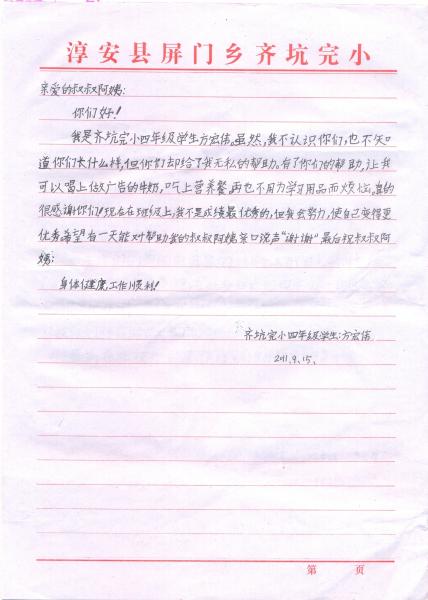 淳安县屏门乡齐坑完小
亲爱的叔叔阿姨:
你们好!
我是齐坑完小四年级学生方宏伟。虽然,我不认识你们,也不知
道你们长什么样,但你们却给了我无私的帮助。有了你们的帮助,让我
可以喝上做广告的牛奶,吃上营养餐,再也不用为学习用品而烦恼。真的
很感谢你们!现在在班级上,我不是成绩最优秀的,但我会努力,使自己变得更
优秀。希望有一天能对帮助我的叔叔阿姨亲口说声“谢谢”最后祝叔叔阿
姨:
身体健康,工作顺利!
齐坑完小四年级学生:方宏伟
2011.9.15.
第 页